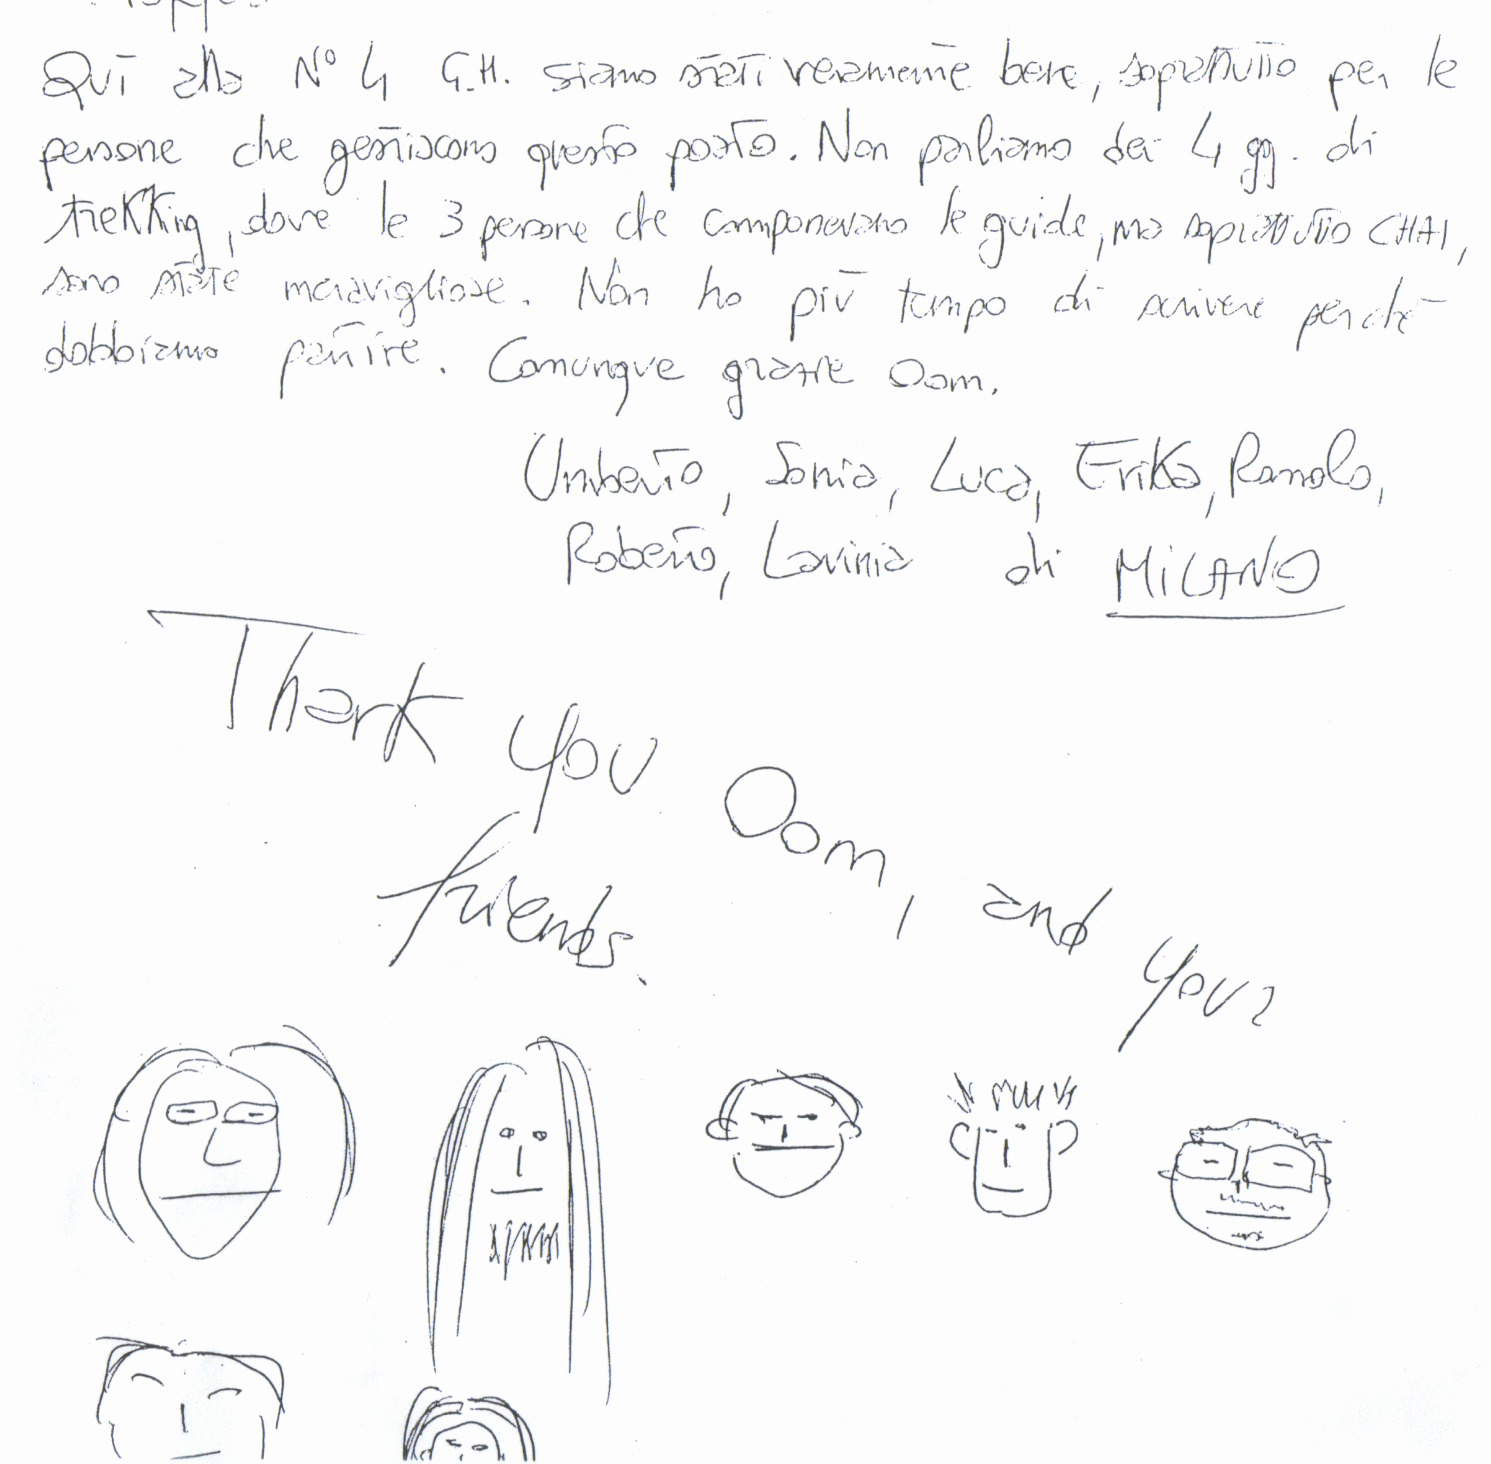 Quì alla N° 4 G.H. siamo stati veramente bene, soprattutto per le
persone che gestiscono questo posto. Non parliamo dei 4 gg. di
trekking, dove le 3 persone che componevano le guide, ma soprattutto CHAI,
sono state meravigliose. Non ho più tempo di scrivere perchè
dobbiamo partire. Comunque grazie Oom.
Umberto, Sonia, Luca, Erika, Romolo,
Roberto, Lavinia di MILANO
Thank you Oom, and your
friends.